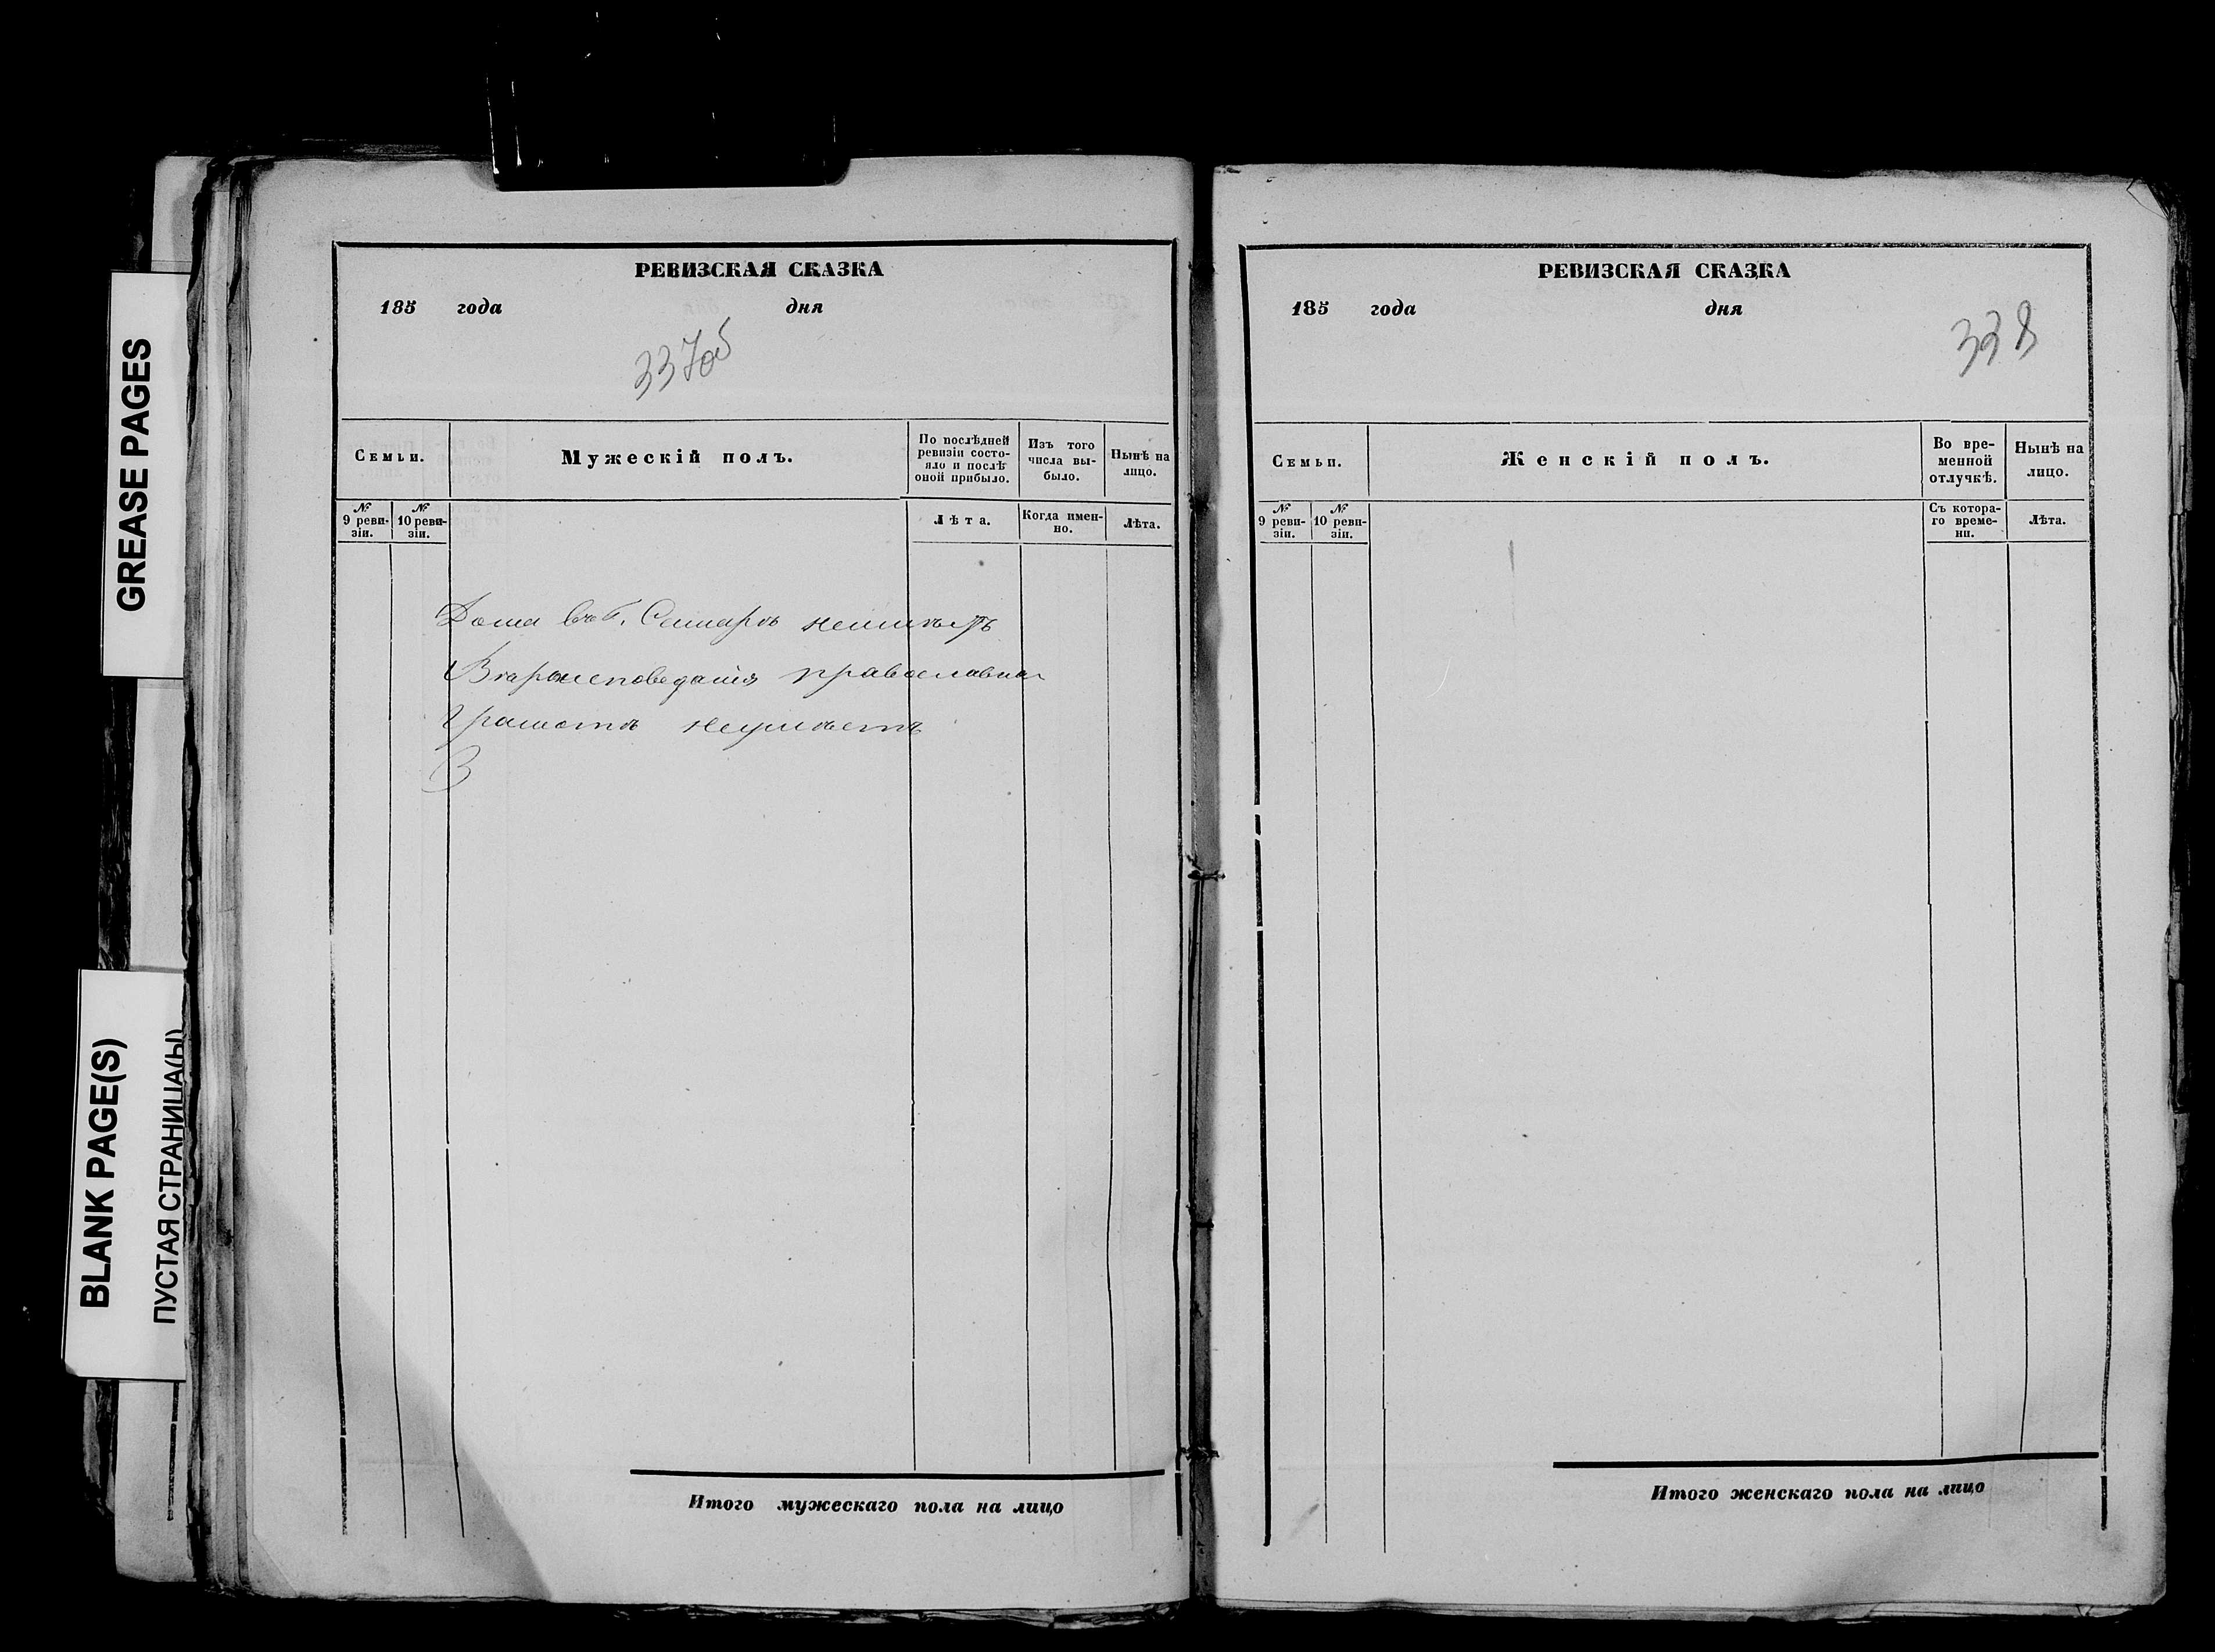 GREASE PAGES
BLANK PAGE(S)
ПУСТАЯ СТРАНИЦА(Ы)
РЕВИЗСКАЯ СКАЗКА
185 года дня
337об
Семьи.
Мужескій полъ.
По послѣдней
ревизіи состо-
яло и послѣ
оной прибыло.
Изъ того
числа вы-
было.
Нынѣ на
лицо.
№
9 реви-
зіи.
№
10 реви-
зіи.
Лѣта.
Когда имен-
но.
Лѣта.
Дома въ г. Самарѣ неимѣетъ
Вѣроисповеданія православнаг
Грамотѣ неумѣетъ
Итого мужескаго пола на лицо
РЕВИЗСКАЯ СКАЗКА
185 года дня
338
Семьи.
Женскій полъ.
Во вре-
менной
отлучкѣ.
Нынѣ на
лицо.
№
9 реви-
зіи.
№
10 реви-
зіи.
Съ котора-
го време-
ни.
Лѣта.
Итого женскаго пола на лицо